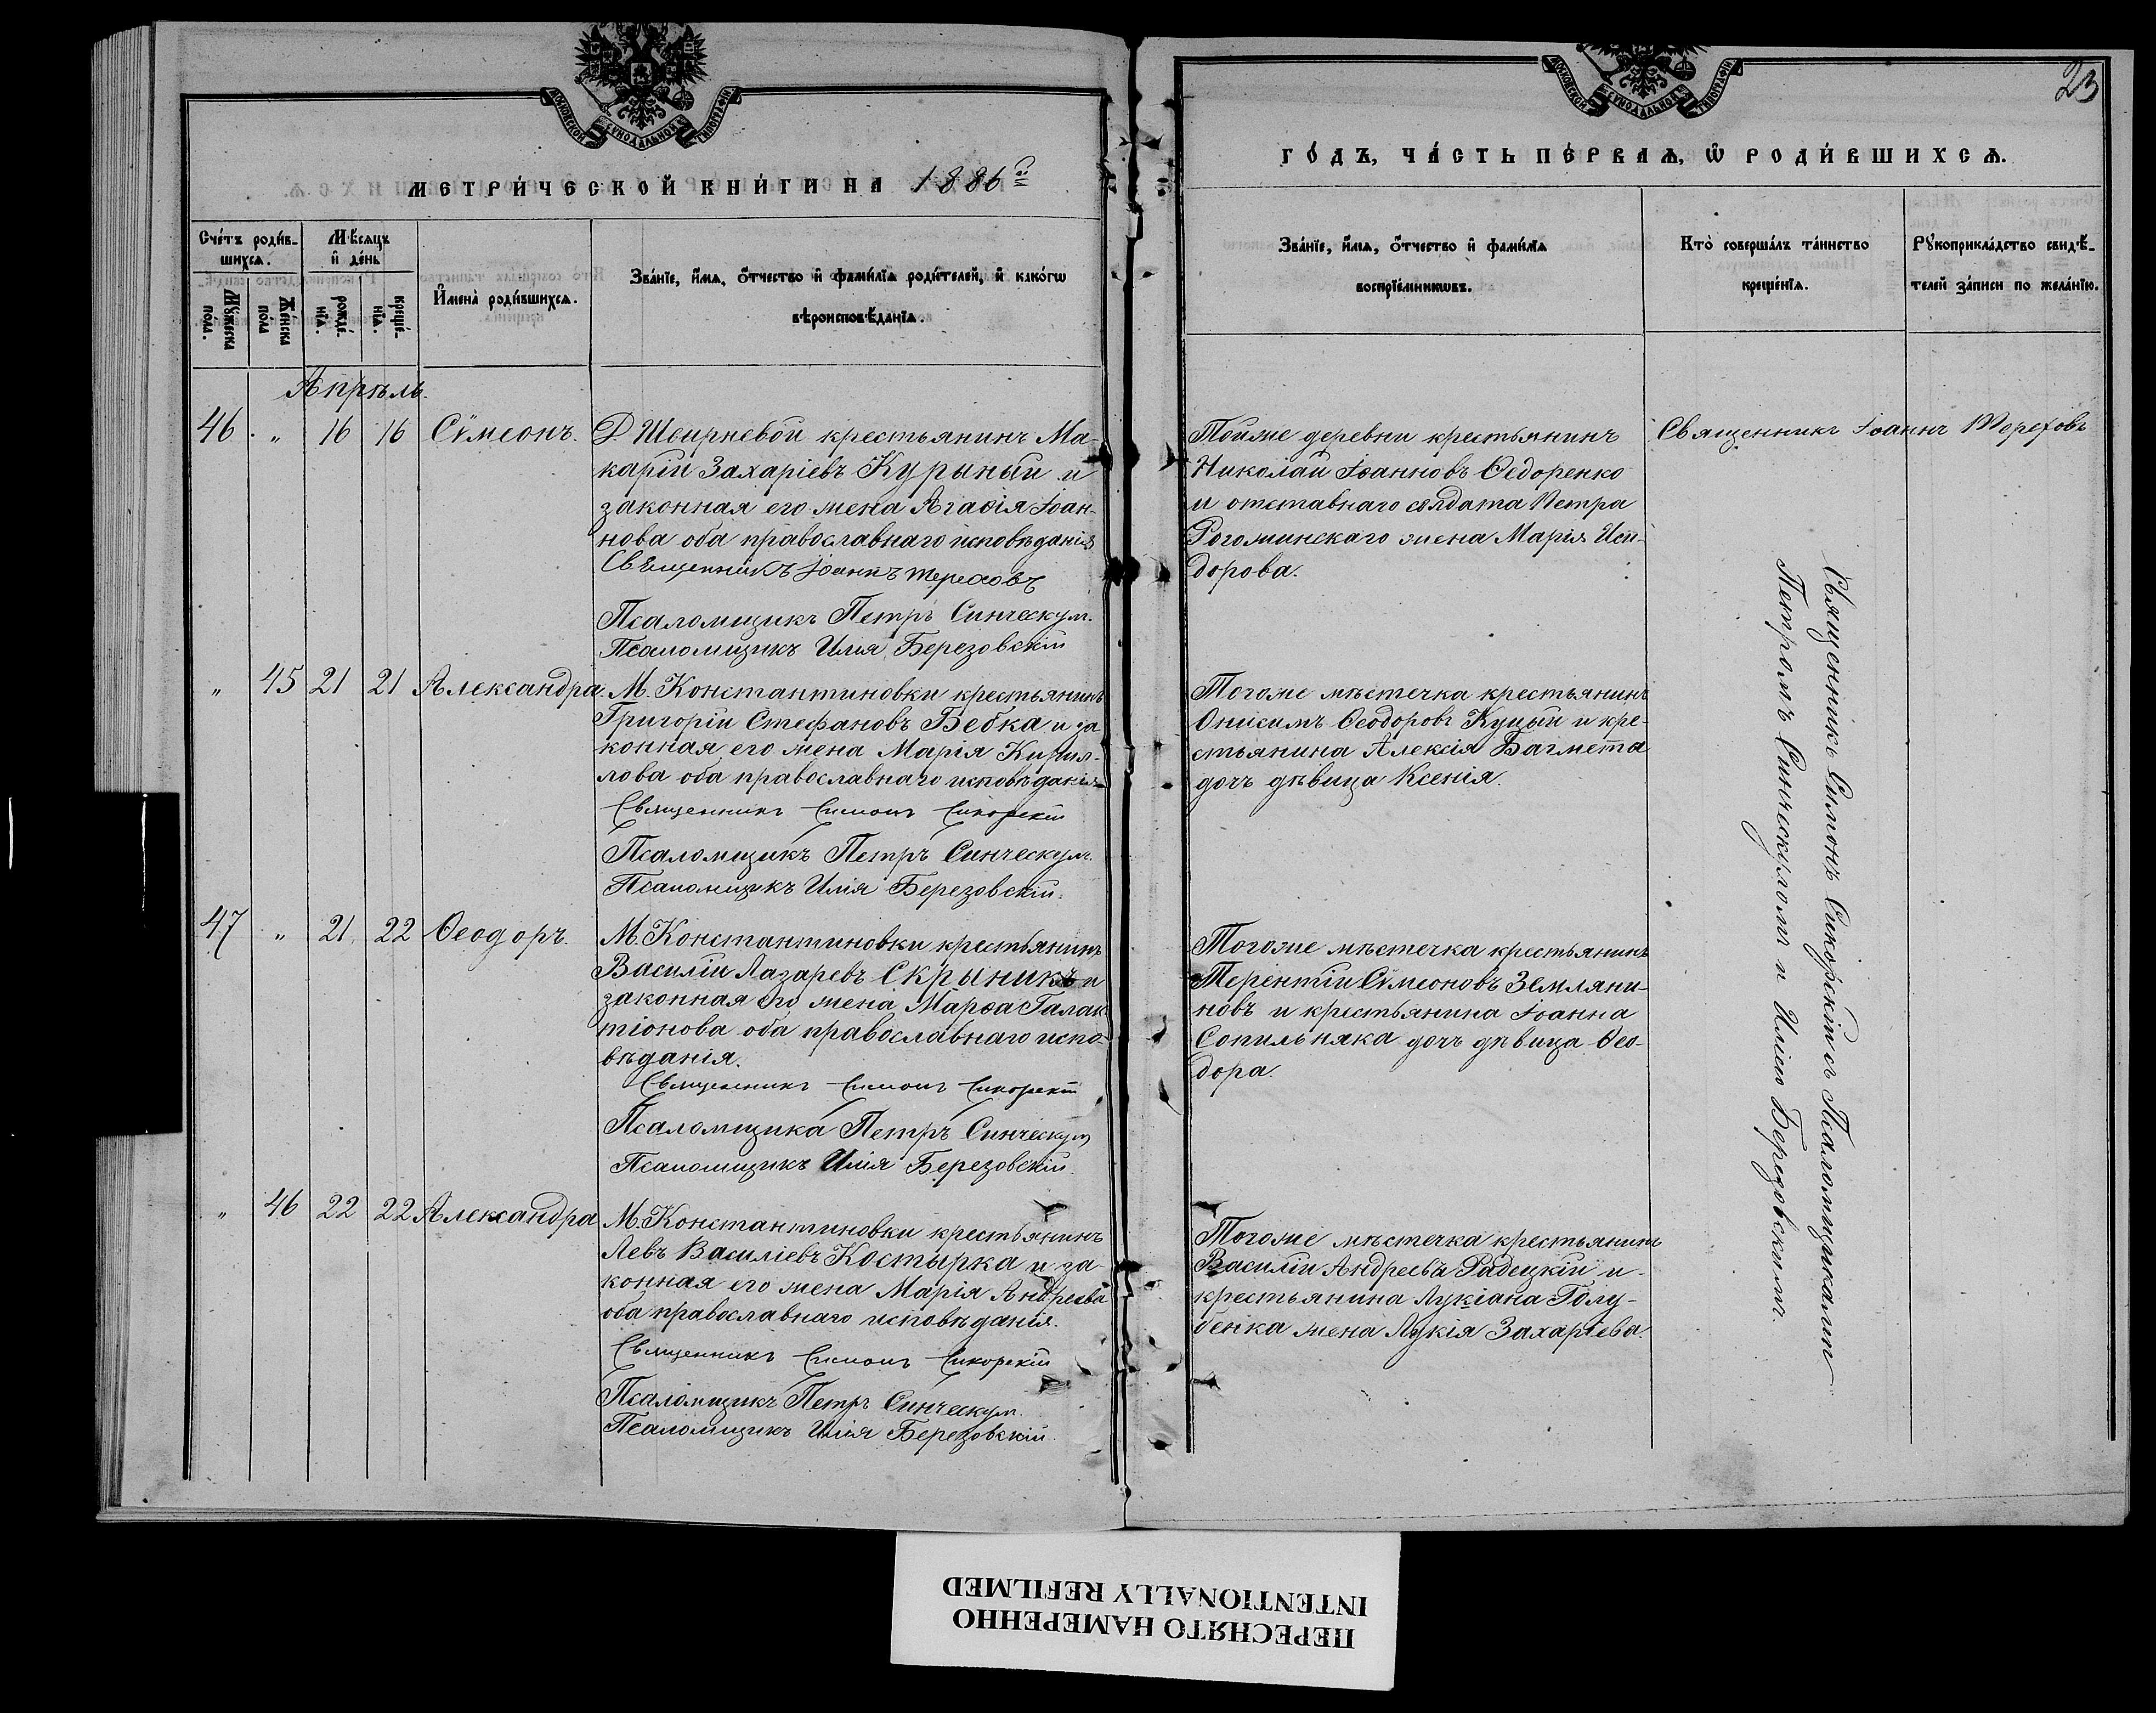 МОСКОВСКОЙ СѴНОДАЛЬНОЙ ТИПОГРАФІИ
МЕТРИ́ЧЕСКОЙ КНИ́ГИ НА 1886й
Сче́тъ роди́в-
шихсѧ.
Мꙋжеска по́ла.
Женска по́ла
Мѣ́сѧцъ
и҆ де́нь
рожде́-
нїѧ.
креще́-
нїѧ.
И҆мена̀ роди́вшихсѧ.
Зва́нїе, и҆́мѧ, ѻ҆́тчество и҆ фами́лїѧ роди́телей, и҆ како́гѡ
вѣроисповѣ́данїѧ.
Апрѣль.
46. " 16 16 Сѵмеонъ.
Д Шеирневой крестьянинъ Ма-
карій Захаріевъ Курыный и
законная его жена Агаѳія Іоан-
нова оба православнаго исповѣданія
Священникъ Іоаннъ Терефовъ
Псаломщикъ Петръ Синческул.
Псаломщикъ Илія Березовскій
" 45 21 21 Александра.
М. Константиновки крестьянинъ
Григорій Стефановъ Бебка и за
конная его жена Марія Кирил-
лова оба православнаго исповѣданія
Священникъ Симонъ Сикорскій
Псаломщикъ Петръ Синческул.
Псаломщикъ Илія Березовскій.
47 " 21. 22 Ѳеодоръ.
М. Константиновки крестьянинъ
Василій Лазаревъ Скрыникъ и
законная его жена Марѳа Галак
тіонова оба православнаго испо-
вѣданія.
Священникъ Симонъ Сикорскій
Псаломщика Петръ Синческул
Псаломщикъ Илія Березовскій.
" 46 22 22 Александра
М. Константиновки крестьянинъ
Левъ Василіевъ Костырка и за-
конная его жена Марія Андреева
оба православнаго исповѣданія.
Священникъ Симонъ Сикорскій
Псаломщикъ Петръ Синческул.
Псаломщикъ Илія Березовскій.
МОСКОВСКОЙ СѴНОДАЛЬНОЙ ТИПОГРАФІИ
23
ГО́ДЪ, ЧА́СТЬ ПЕ́РВАѦ, Ѽ РОДИ́ВШИХСѦ.
Зва́нїе, и҆́мѧ, ѻ҆́тчество и҆ фами́лїѧ
воспрїе́мникѡвъ.
Кто̀ соверша́лъ та́инство
креще́нїѧ.
Рꙋкоприкла́дство свидѣ́-
телей за́писи по жела́нїю.
Тойже деревни крестьянинъ
Николай Іоанновъ Ѳедоренко
и отставнаго солдата Петра
Рогожинскаго жена Марія Иси-
дорова.
Священникъ Іоаннъ Терефовъ
Тогоже мѣстечка крестьянинъ
Онисимъ Ѳеодоровъ Куцый и кре-
стьянина Алексія Багмета
дочь дѣвица Ксенія.
Тогоже мѣстечка крестьянинъ
Терентій Сѵмеоновъ Земляни-
новъ и крестьянина Іоанна
Сопильняка дочь дѣвица Ѳео-
дора.
Тогоже мѣстечка крестьянинъ
Василій Андреевъ Радецкій и
крестьянина Лукіана Голу-
бенка жена Лукія Захаріева.
Священникъ Симонъ Сикорскій съ Псаломщиками
Петромъ Синческуломъ и Иліею Березовскимъ.
ПЕРЕСНЯТО НАМЕРЕННО
INTENTIONALLY REFILMED